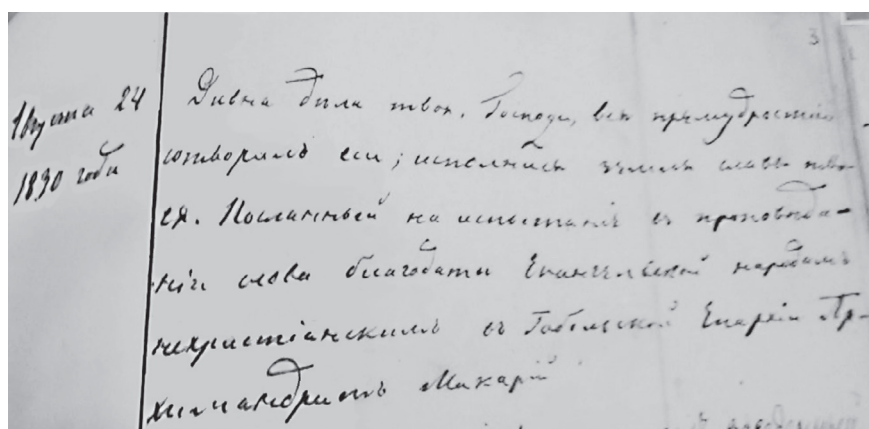 3
Августа 24
1830 года
Дивна дѣла твоя, Господи, вся премудростію
сотворилъ еси; исполнись земля славы тво-
ея. Посланный на испытаніе въ проповѣда-
ніи слова благодати Евангельской народамъ
нехристіанскимъ въ Тобольской Епархіи Ар-
химандритъ Макарій